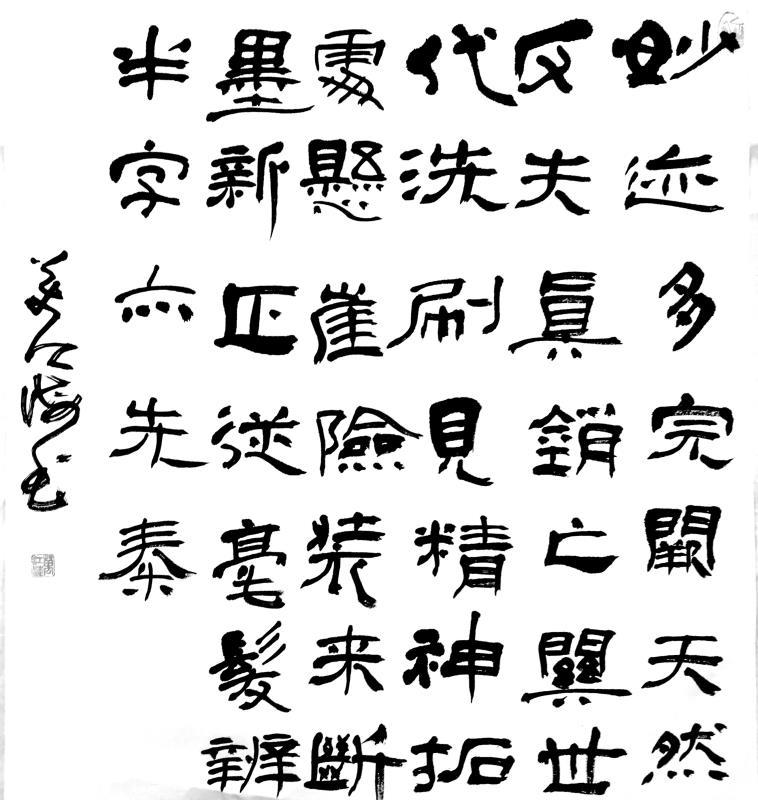 妙迹多完闕天然
反失眞銷亡關世
代洗刷見精神拓
處懸崖險装来斷
墨新正從毫髮辨
半字亦先秦